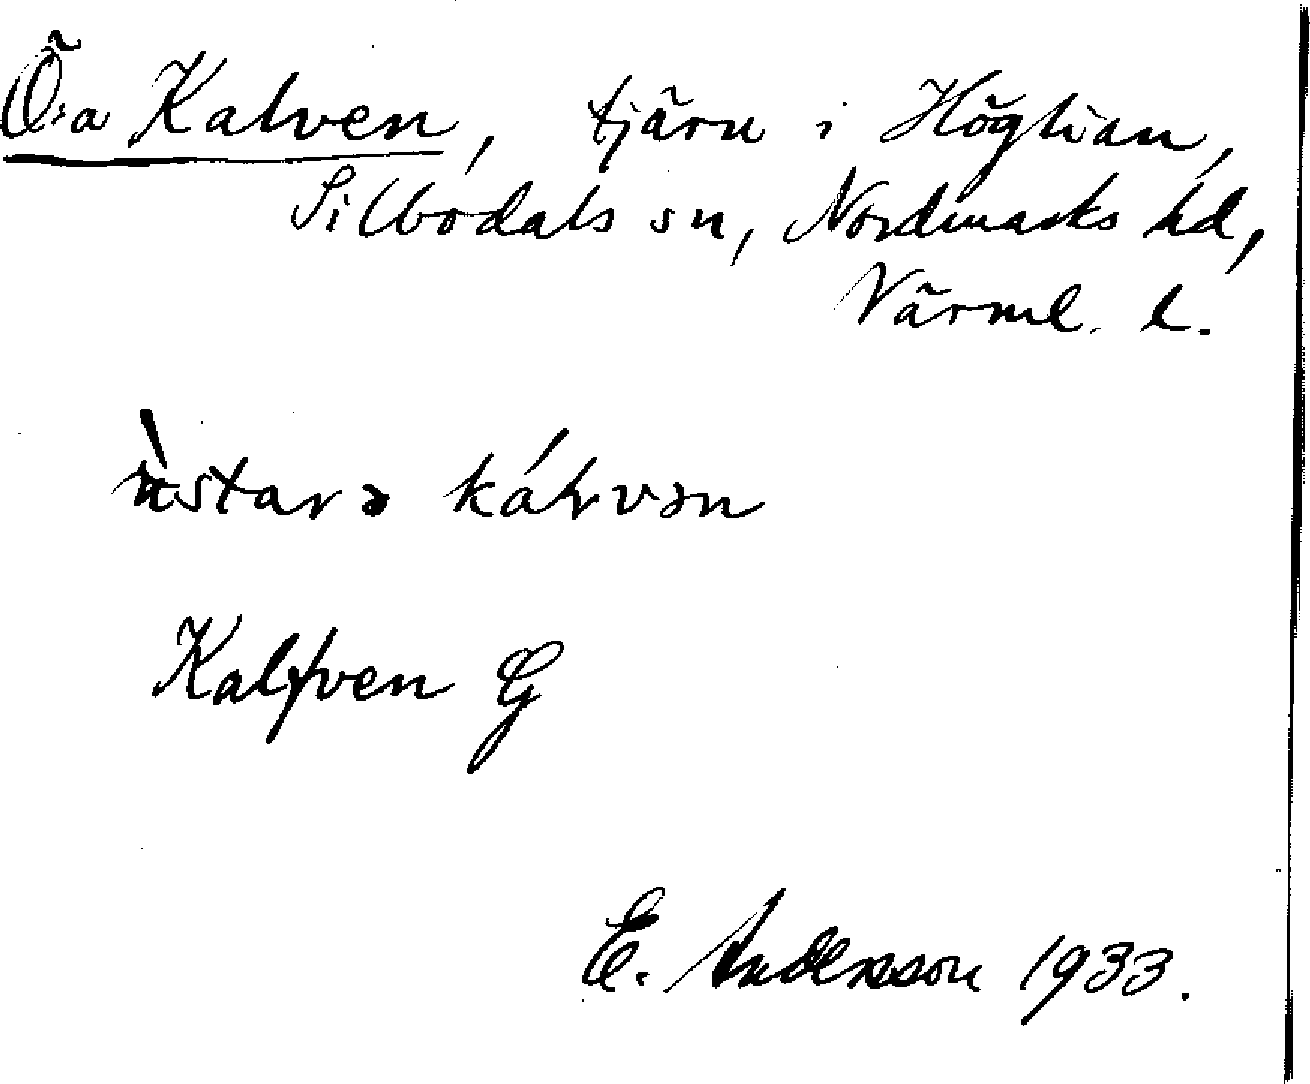 Ö:a Kalven, tjärn i Höglian,
Silbodals sn, Nordmarks hd,
Värml. l.
kálvən
Kalfven G
E. Andersson 1933.